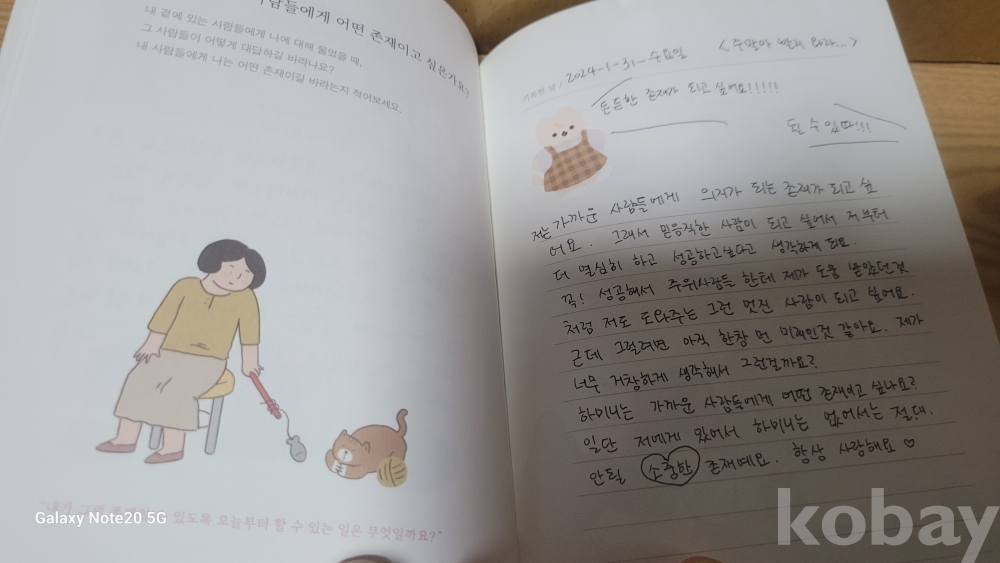 사람들에게 어떤 존재이고 싶은가요?
내 곁에 있는 사람들에게 나에 대해 물었을 때,
그 사람들이 어떻게 대답하길 바라나요?
내 사람들에게 나는 어떤 존재이길 바라는지 적어보세요.
있도록 오늘부터 할 수 있는 일은 무엇일까요?"
Galaxy Note20 5G
기록한 날 / 2024-1-31-수요일 <주말아 빨리 와라...>
든든한 존재가 되고 싶어요!!!!!
될 수 있따!!!
저는 가까운 사람들에게 의지가 되는 존재가 되고 싶
어요. 그래서 믿음직한 사람이 되고 싶어서 저부터
더 열심히 하고 성공하고싶다고 생각하게 되요.
꼭! 성공해서 주위사람들 한테 제가 도움 받았던것
처럼 저도 도와주는 그런 멋진 사람이 되고 싶어요.
근데 그럴려면 아직 한참 먼 미래인것 같아요. 제가
너무 거창하게 생각해서 그런걸까요?
하미니는 가까운 사람들에게 어떤 존재이고 싶나요?
일단 저에게 있어서 하미니는 없어서는 절대.
안될 소중한 존재예요. 항상 사랑해요♡
kobay